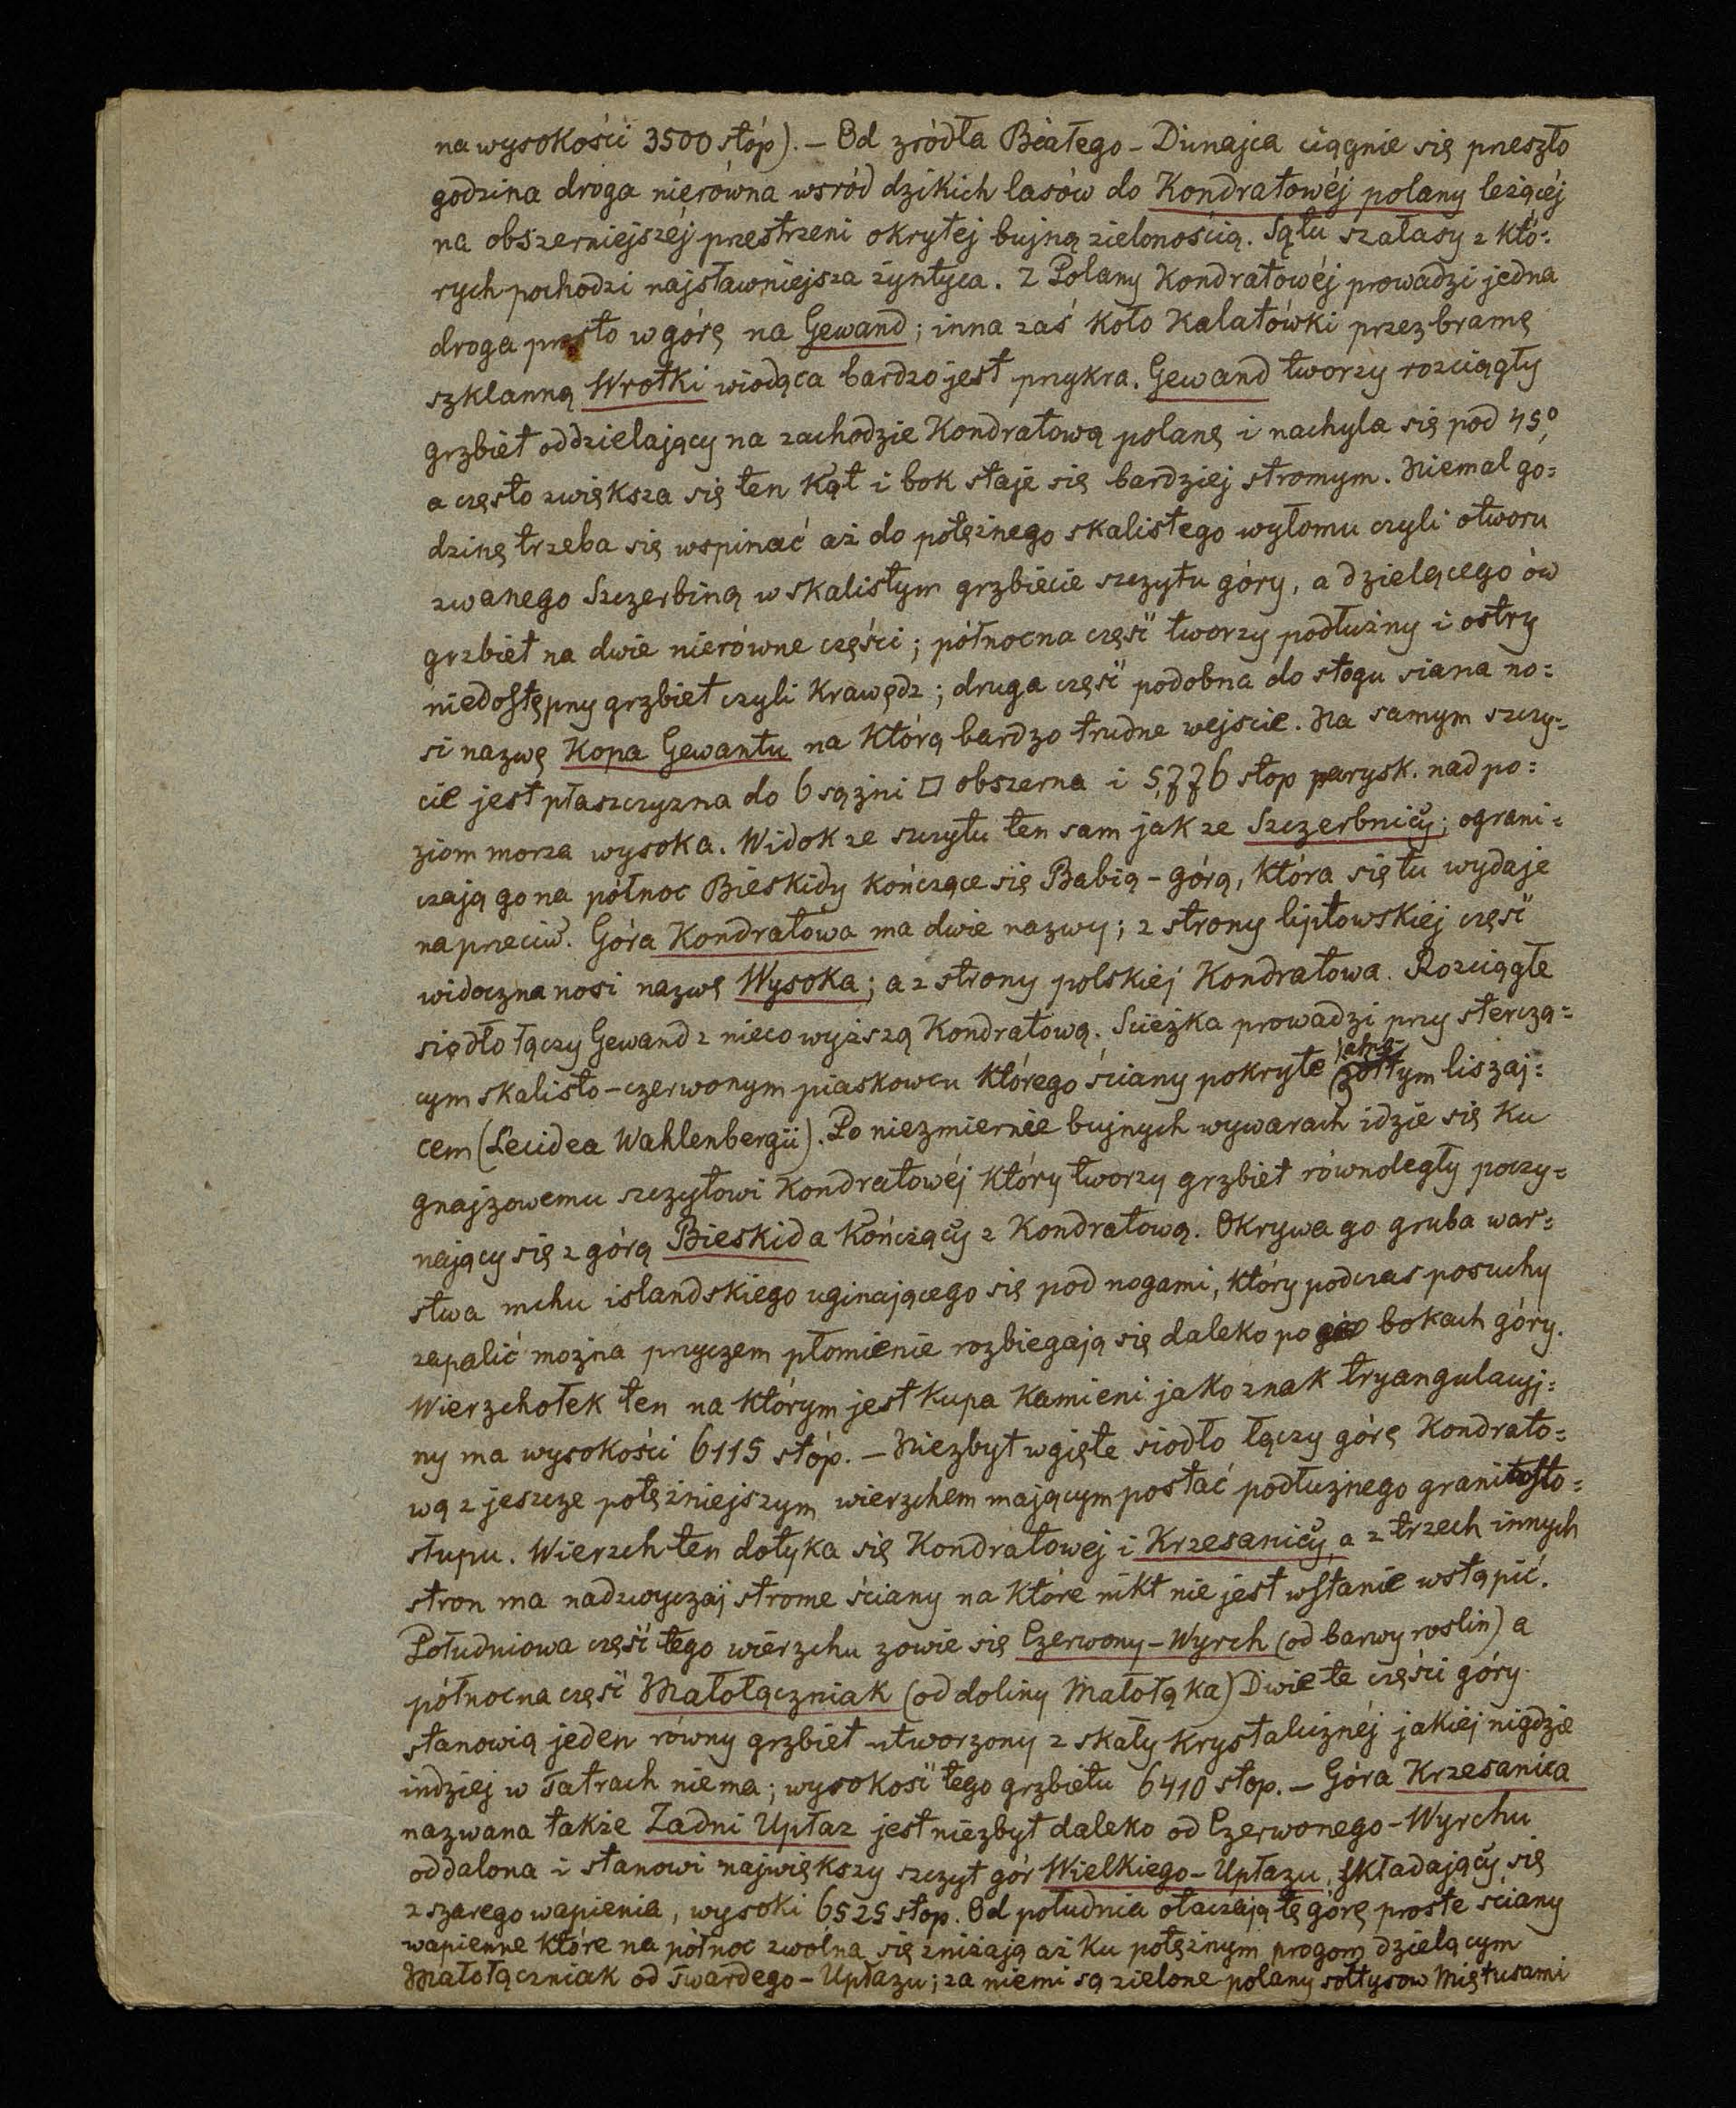 na wysokości 3500 stóp). – Od zródła Białego-Dunajca ciągnie się preszło
godzina droga nierówna wsród dzikich lasów do Kondratowéj polany leżącéj
na obszerniejszéj przestrzeni okrytej bujną zielonością. Są tu szałasy z któ=
rych pochodzi najsławniejsza żyntyca. Z Polany Kondratowéj prowadzi jedna
droga prosto w górę na Gewand; inna zaś koło Kalatówki przez bramę
szklanną Wrotki wiodąca bardzo jest przykra. Gewand tworzy rozciągły
grzbiet oddzielający na zachodzie Kondratową polanę i nachyla się pod 45°,
a często zwiększa się ten kąt i bok staje się bardziej stromym. Niemal go=
dzinę trzeba się wspinać aż do potężnego skalistego wyłomu czyli otworu
zwanego Szczerbiną w skalistym grzbiecie szczytu góry, a dzielącego ów
grzbiet na dwie nierówne części; północna część tworzy podłużny i ostry
niedostępny grzbiet czyli krawędz; druga część podobna do stogu siana no=
si nazwę Kopa Gewantu na którą bardzo trudne wejscie. Na samym szczy=
cie jest płaszczyzna do 6 sążni □ obszerna i 5,776 stop parysk. nad po=
ziom morza wysoka. Widok ze szczytu ten sam jak ze Szczerbnicy; ograni=
czają go na północ Bieskidy kończące się Babią-górą, która się tu wydaje
napreciw. Góra Kondratowa ma dwie nazwy; z strony liptowskiéj część
widoczna nosi nazwę Wysoka; a z strony polskiéj Kondratowa. Rozciągłe
siodło łączy Gewand z nieco wyższą Kondratową. Scieżka prowadzi przy stercza=
cym skalisto-czerwonym piaskowcu którego ściany pokryte żółtym liszaj=
cem (Lecidea Wahlenbergii). Po niezmiernie bujnych wywarach idzie się ku
gnajzowemu szczytowi Kondratowéj który tworzy grzbiet równoległy poczy=
nający się z górą Bieskida kończący z Kondratową. Okrywa go gruba war=
stwa mchu islandskiego uginającego się pod nogami, który podczas posuchy
zapalić można przyczem płomienie rozbiegają się daleko po bokach góry.
Wierzchołek ten na którym jest kupa kamieni jako znak tryangulacyj=
ny ma wysokości 6115 stóp. – Niezbyt wgięte siodło łączy górę Kondrato=
wą z jeszcze potężniejszym wierzchem mającym postać podłużnego granitosło=
słupu. Wierzch ten dotyka się Kondratowej i Krzesanicy a z trzech innych
stron ma nadzwyczaj strome ściany na które nikt nie jest wstanie wstąpić.
Południowa część tego wierzchu zowie się Czerwony-Wyrch (od barwy roslin) a
północna część Małołączniak (od doliny Małołąka) Dwie te części góry
stanowią jeden równy grzbiet utworzony z skały krystalicznéj jakiej nigdzie
indziej w Tatrach niema; wysokość tego grzbietu 6410 stop. – Góra Krzesanica
nazwana także Zadni Upłaz jest niezbyt daleko od Czerwonego-Wyrchu
oddalona i stanowi największy szczyt gór Wielkiego-Upłazu, składający się
z szarego wapienia, wysoki 6525 stop. Od południa otaczają tę górę proste ściany
wapienne które na północ zwolna się zniżają aż ku potężnym progom dzielącym
Małołączniak od Twardego-Upłazu; za niemi są zielone polany sołtysow Miętusami